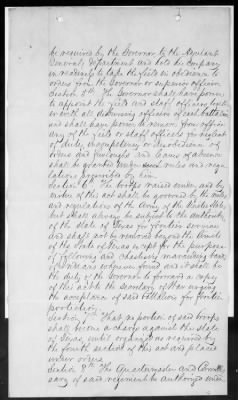 be required by the Governor to the Adjutant
General's Department and hold the Company
in readiness to take the field in obedience to
orders from the Governor or superior officer.
Section 5th. The Governor shall have power
to appoint the field and staff officers
or with all disbursing officers of each battalion
and shall have power to remove from office
any of the field or staff officers for neglect
of duty, incompetency or disobedience of
orders and furloughs and leaves of absence
shall be granted under such rules and regu-
lations prescribed by him.
Section 6th. The troops raised under and by
virtue of this act shall be governed by the rules
and regulations of the Army of the United States
but shall always be subject to the authority
of the State of Texas for frontier service
and shall not be removed beyond the limits
of the State of Texas except for the purpose
of following and chastising marauding bands
of Indians wherever found and it shall be
the duty of the Governor to forward a copy
of this act to the Secretary of War urging
the acceptance of said Battalions for frontier
protection.
Section 7th. That no portion of said troops
shall become a charge against the State
of Texas, until organized as required by
the fourth section of this act and placed
under orders.
Section 8th. The Quartermaster and Commis-
sary of said regiment be authorized under